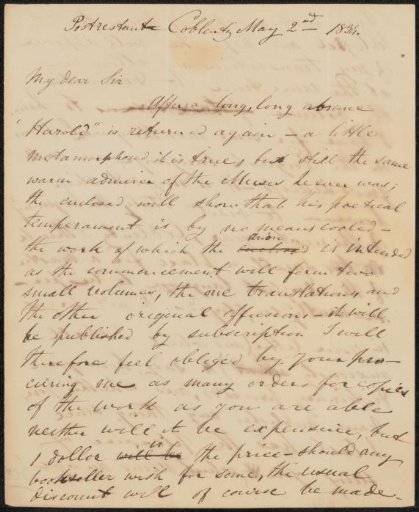 Postrestante Coblentz May 2nd 1834.
My dear Sir
After a long, long absence
"Harold" is returned again – a little
metamorphosed it is true, but still the same
warm admirer of the Muses he ever was;
the enclosed will show that his poetical
temperament is by no means cooled –
the work of which the is intended
as the commencement will form two
small volumes, the one translations and
the other original effusions – it will
be published by subscription I will
therefore feel obliged by your pro-
curing me as many orders for copies
of the work as you are able
neither will it be expensive, but
1 dollar will be is the price – should any
bookseller wish for some, the usual
discount will of course be made –